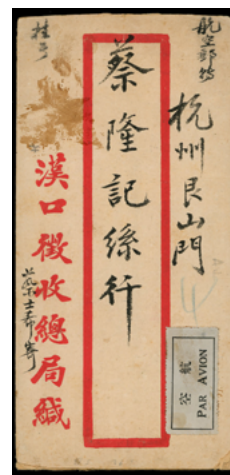 航空郵寄
杭州艮山門
蔡隆記絲行
漢口徵收總局緘
航空
PAR AVION